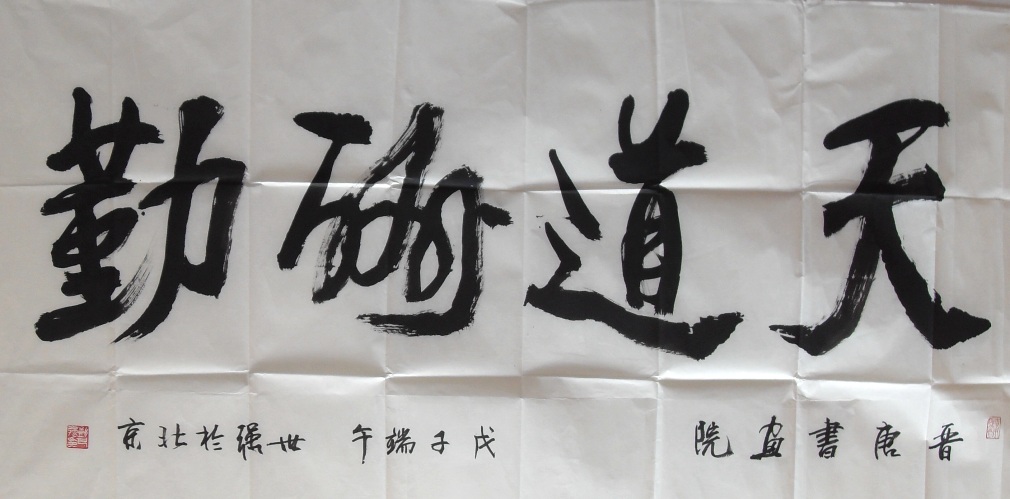 天道酬勤
晋唐書画院
戊子端午 世强於北京